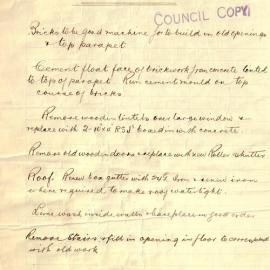 COUNCIL COPY
Bricks to be good machine for to build in old openings
& top parapet
Cement float face of brickwork from concrete lintel
to top of parapet Run cement mould on top
course of bricks
Remove wooden lintels over large window &
replace with 2-10x6 RSJ boxed in with concrete
Remove old wooden doors & replace with new Roller shutter
Roof. Renew box gutter with Iron & renew iron
where required to make roof watertight.
Lime wash inside walls & leave place in good order
Remove stairs & fill in opening in floor to correspond
with old work